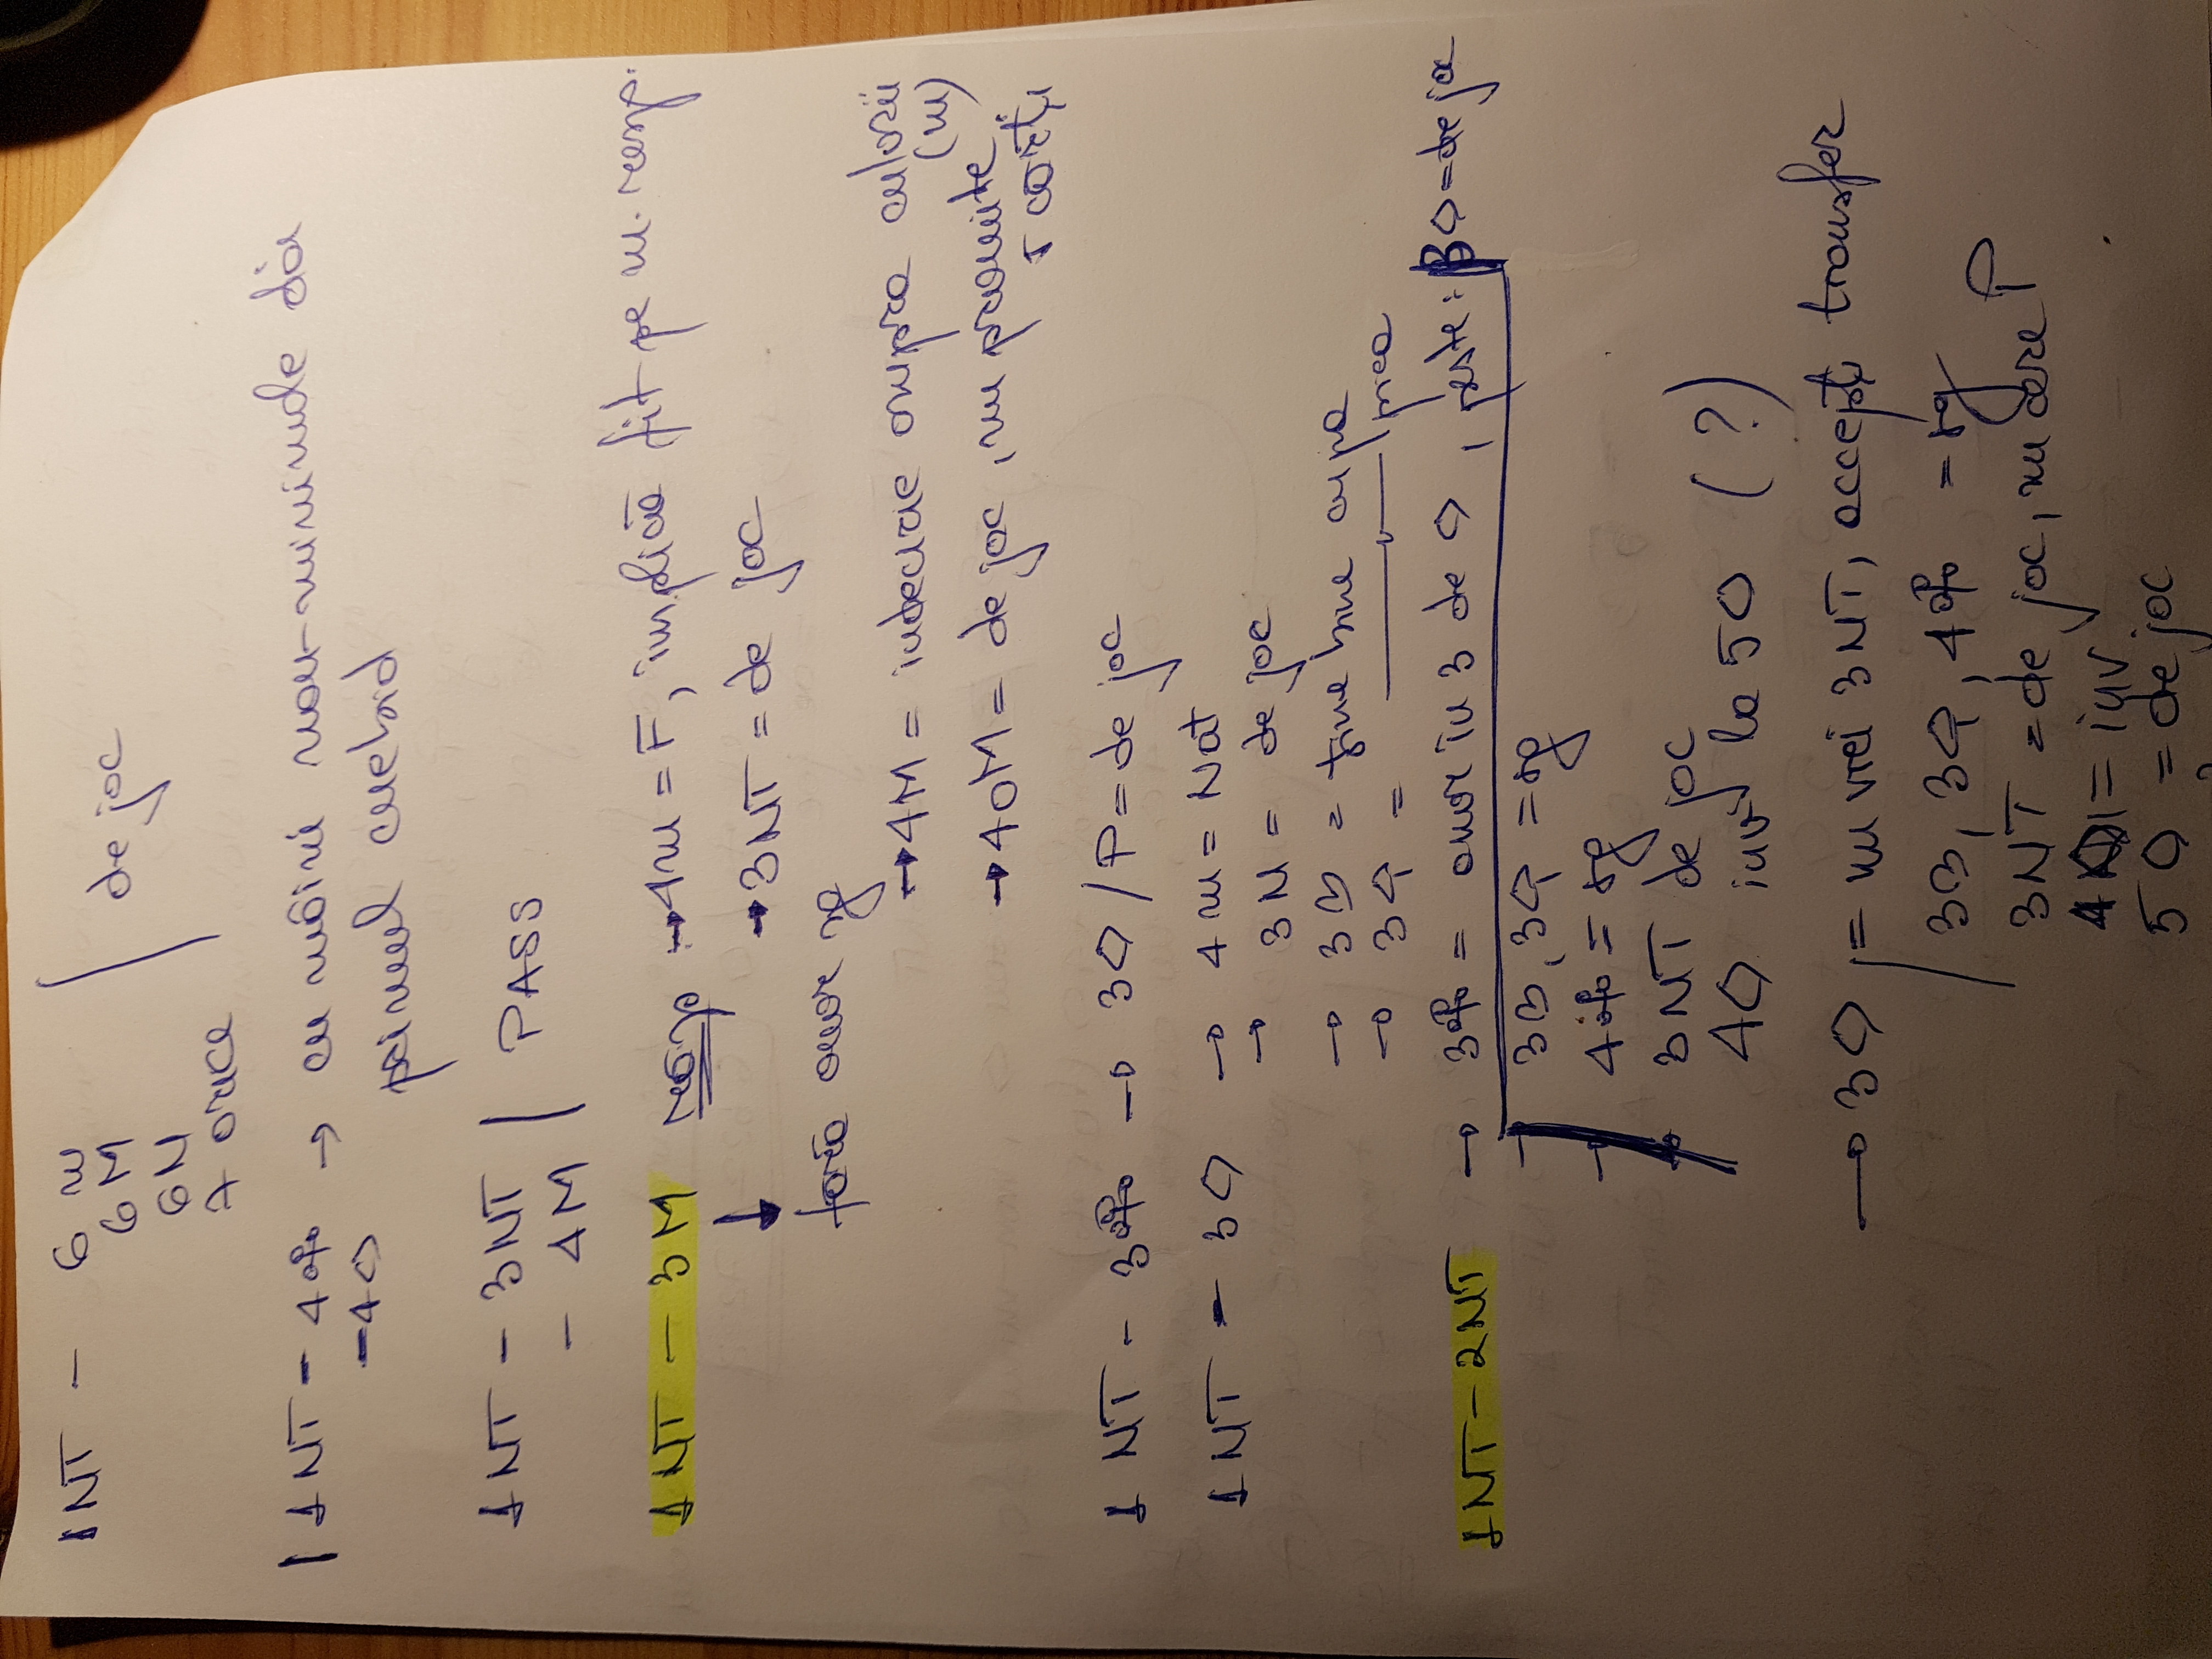 1NT - 6 m
6 M
6N
7 orice
de joc
1NT - 4♣ → cu mâini non-minimale dăi
-4♢ primul cuebid
1NT - 3NT / PASS
- 4M
1NT - 3M răsp → 4m = F, implică fit pe m. resp.
→ 3NT = de joc
↓
fără onor sg
→ 4M = indecizie asupra culorii
(m)
→ 4oM = de joc, nu promite
5 cărți
1NT - 3♣ → 3♢ / P = de joc
1NT - 3♢ → 4m = Nat
→ 3N = de joc
→ 3♡ = ține bine cupa
→ 3♤ = ——〃—— pica
1NT - 2NT → 3♣ = onor în 3 de ♢, peste: 3♢ = de joc
- 3♡, 3♤ = sg
- 4♣ = sg
→ 3NT de joc
4♢ inv la 5♢ (?)
→ 3♢ = nu vrei 3NT, accepți transfer
3♡, 3♤, 4♣ = sg
3NT = de joc, nu cere P
4♢ = inv
5♢ = de joc